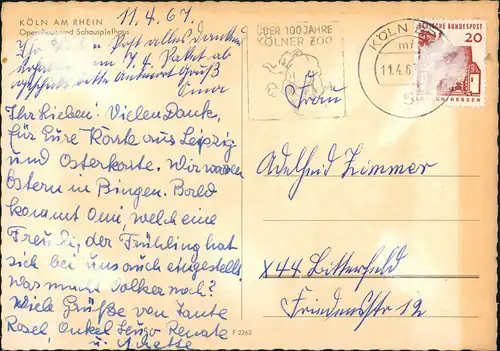 KÖLN AM RHEIN
Opernhaus und Schauspielhaus
11.4.67.
Post alles danken
am 7.4. Paket ab
bitte Antwort Gruß
Oma
Ihr Lieben! Vielen Dank,
für Eure Karte aus Leipzig
und Osterkarte. Wir waren
Ostern in Bingen. Bald
kommt Omi, welch eine
Freude, der Frühling hat
sich bei uns auch eingestellt.
Was macht Volker noch?
Viele Grüße von Tante
Rosel, Onkel Hugo Renate
u. Anette
F 2263
ÜBER 100 JAHRE
KÖLNER ZOO
KÖLN
11.4.6
5
DEUTSCHE BUNDESPOST
20
LORSCH/HESSEN
Frau
Adelheid Zimmer
X44 Bitterfeld
Friedensstr 12